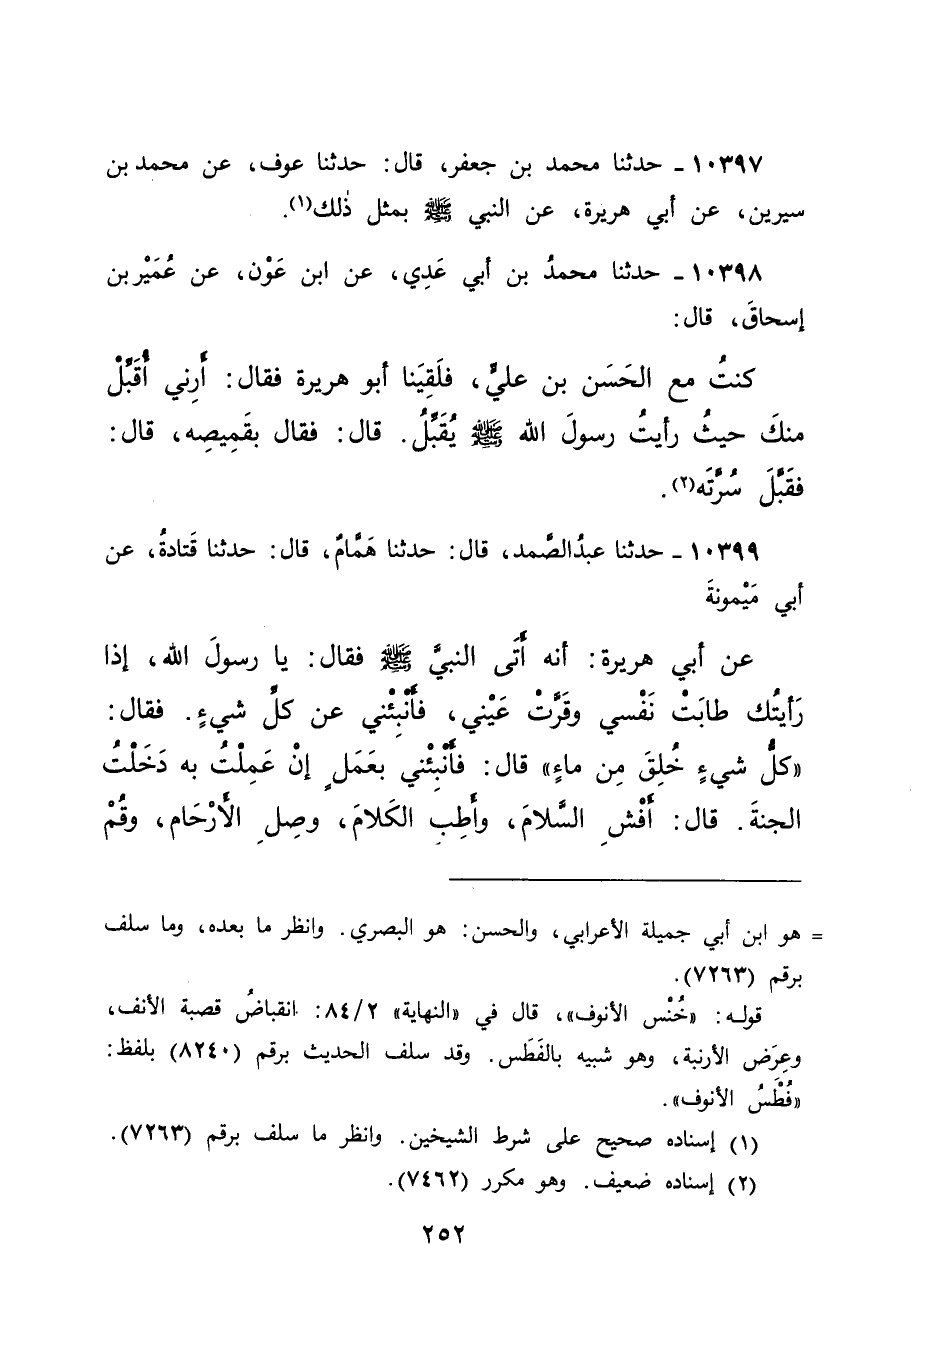 ١٠٣٩٧ ـ حدثنا محمد بن جعفر، قال: حدثنا عوف، عن محمد بن
سيرين، عن أبي هريرة، عن النبي ﷺ بمثل ذٰلك(١).
١٠٣٩٨ ـ حدثنا محمدُ بن أبي عَدِي، عن ابن عَوْن، عن عُمَيْر بن
إسحاقَ، قال:
كنتُ مع الحَسَن بن عليٍّ، فلَقِيَنا أبو هريرة فقال: أَرِني أُقَبِّلْ
منكَ حيثُ رأيتُ رسولَ الله ﷺ يُقَبِّلُ. قال: فقال بقَمِيصِه، قال:
فقَبَّلَ سُرَّتَه(٢).
١٠٣٩٩ ـ حدثنا عبدُالصَّمد، قال: حدثنا هَمَّامٌ، قال: حدثنا قَتادةُ، عن
أبي مَيْمونةَ
عن أبي هريرة: أنه أَتَى النبيَّ ﷺ فقال: يا رسولَ الله، إذا
رَأيتُك طابَتْ نَفْسي وقَرَّتْ عَيْني، فأَنْبِئْني عن كلِّ شيءٍ. فقال:
«كلُّ شيءٍ خُلِقَ مِن ماءٍ» قال: فأَنْبِئْني بعَمَلٍ إنْ عَمِلْتُ به دَخَلْتُ
الجنةَ. قال: أَفْشِ السَّلامَ، وأَطِبِ الكَلامَ، وصِلِ الأَرْحَام، وقُمْ
= هو ابن أبي جميلة الأعرابي، والحسن: هو البصري. وانظر ما بعده، وما سلف
برقم (٧٢٦٣).
قوله: «خُنْس الأنوف»، قال في «النهاية» ٨٤/٢: انقباضُ قصبة الأنف،
وعِرَض الأرنبة، وهو شبيه بالفَطَس. وقد سلف الحديث برقم (٨٢٤٠) بلفظ:
«فُطْسُ الأنوف».
(١) إسناده صحيح على شرط الشيخين. وانظر ما سلف برقم (٧٢٦٣).
(٢) إسناده ضعيف. وهو مكرر (٧٤٦٢).
٢٥٢